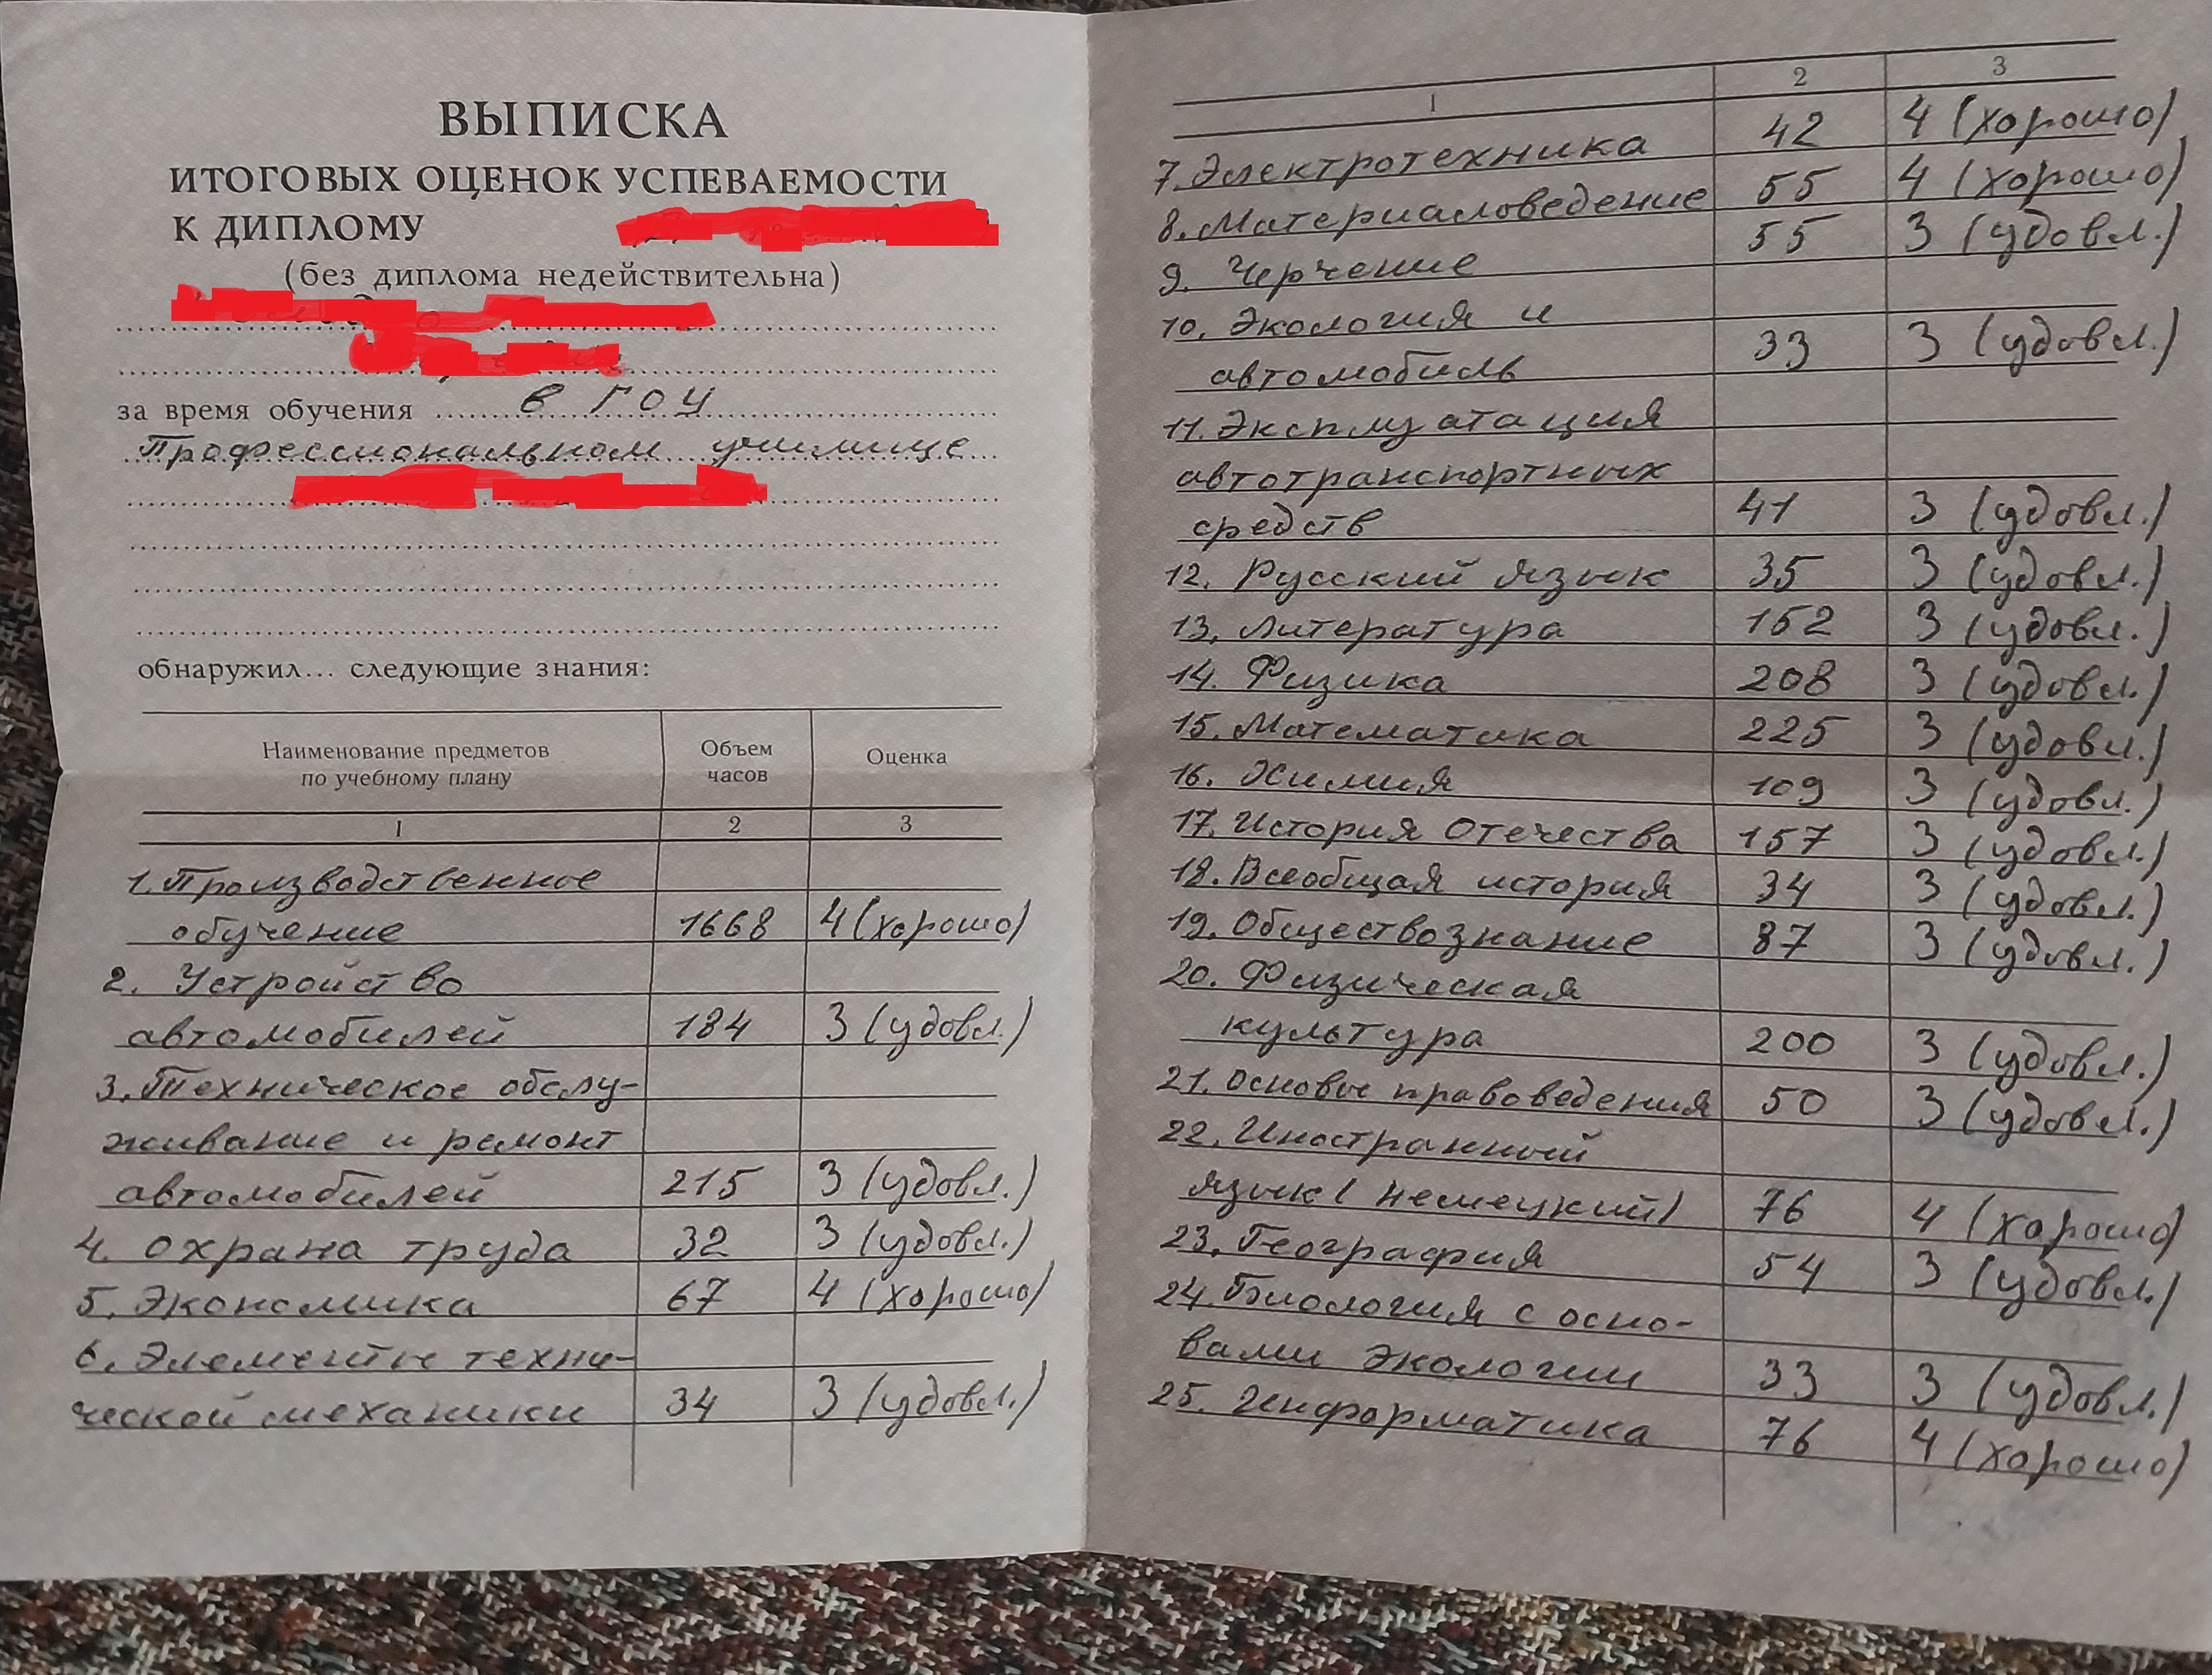 ВЫПИСКА
ИТОГОВЫХ ОЦЕНОК УСПЕВАЕМОСТИ
К ДИПЛОМУ
(без диплома недействительна)
за время обучения в ГОУ
Профессиональном училище
обнаружил... следующие знания:
Наименование предметов Объем Оценка
по учебному плану часов
1 2 3
1. Производственное
обучение 1668 4 (хорошо)
2. Устройство
автомобилей 184 3 (удовл.)
3. Техническое обслу-
живание и ремонт
автомобилей 215 3 (удовл.)
4. Охрана труда 32 3 (удовл.)
5. Экономика 67 4 (хорошо)
6. Элементы техни-
ческой механики 34 3 (удовл.)
1 2 3
7. Электротехника 42 4 (хорошо)
8. Материаловедение 55 4 (хорошо)
9. Черчение 55 3 (удовл.)
10. Экология и
автомобиль 33 3 (удовл.)
11. Эксплуатация
автотранспортных
средств 41 3 (удовл.)
12. Русский язык 35 3 (удовл.)
13. Литература 152 3 (удовл.)
14. Физика 208 3 (удовл.)
15. Математика 225 3 (удовл.)
16. Химия 109 3 (удовл.)
17. История Отечества 157 3 (удовл.)
18. Всеобщая история 34 3 (удовл.)
19. Обществознание 87 3 (удовл.)
20. Физическая
культура 200 3 (удовл.)
21. Основы правоведения 50 3 (удовл.)
22. Иностранный
язык (немецкий) 76 4 (хорошо)
23. География 54 3 (удовл.)
24. Биология с осно-
вами экологии 33 3 (удовл.)
25. Информатика 76 4 (хорошо)